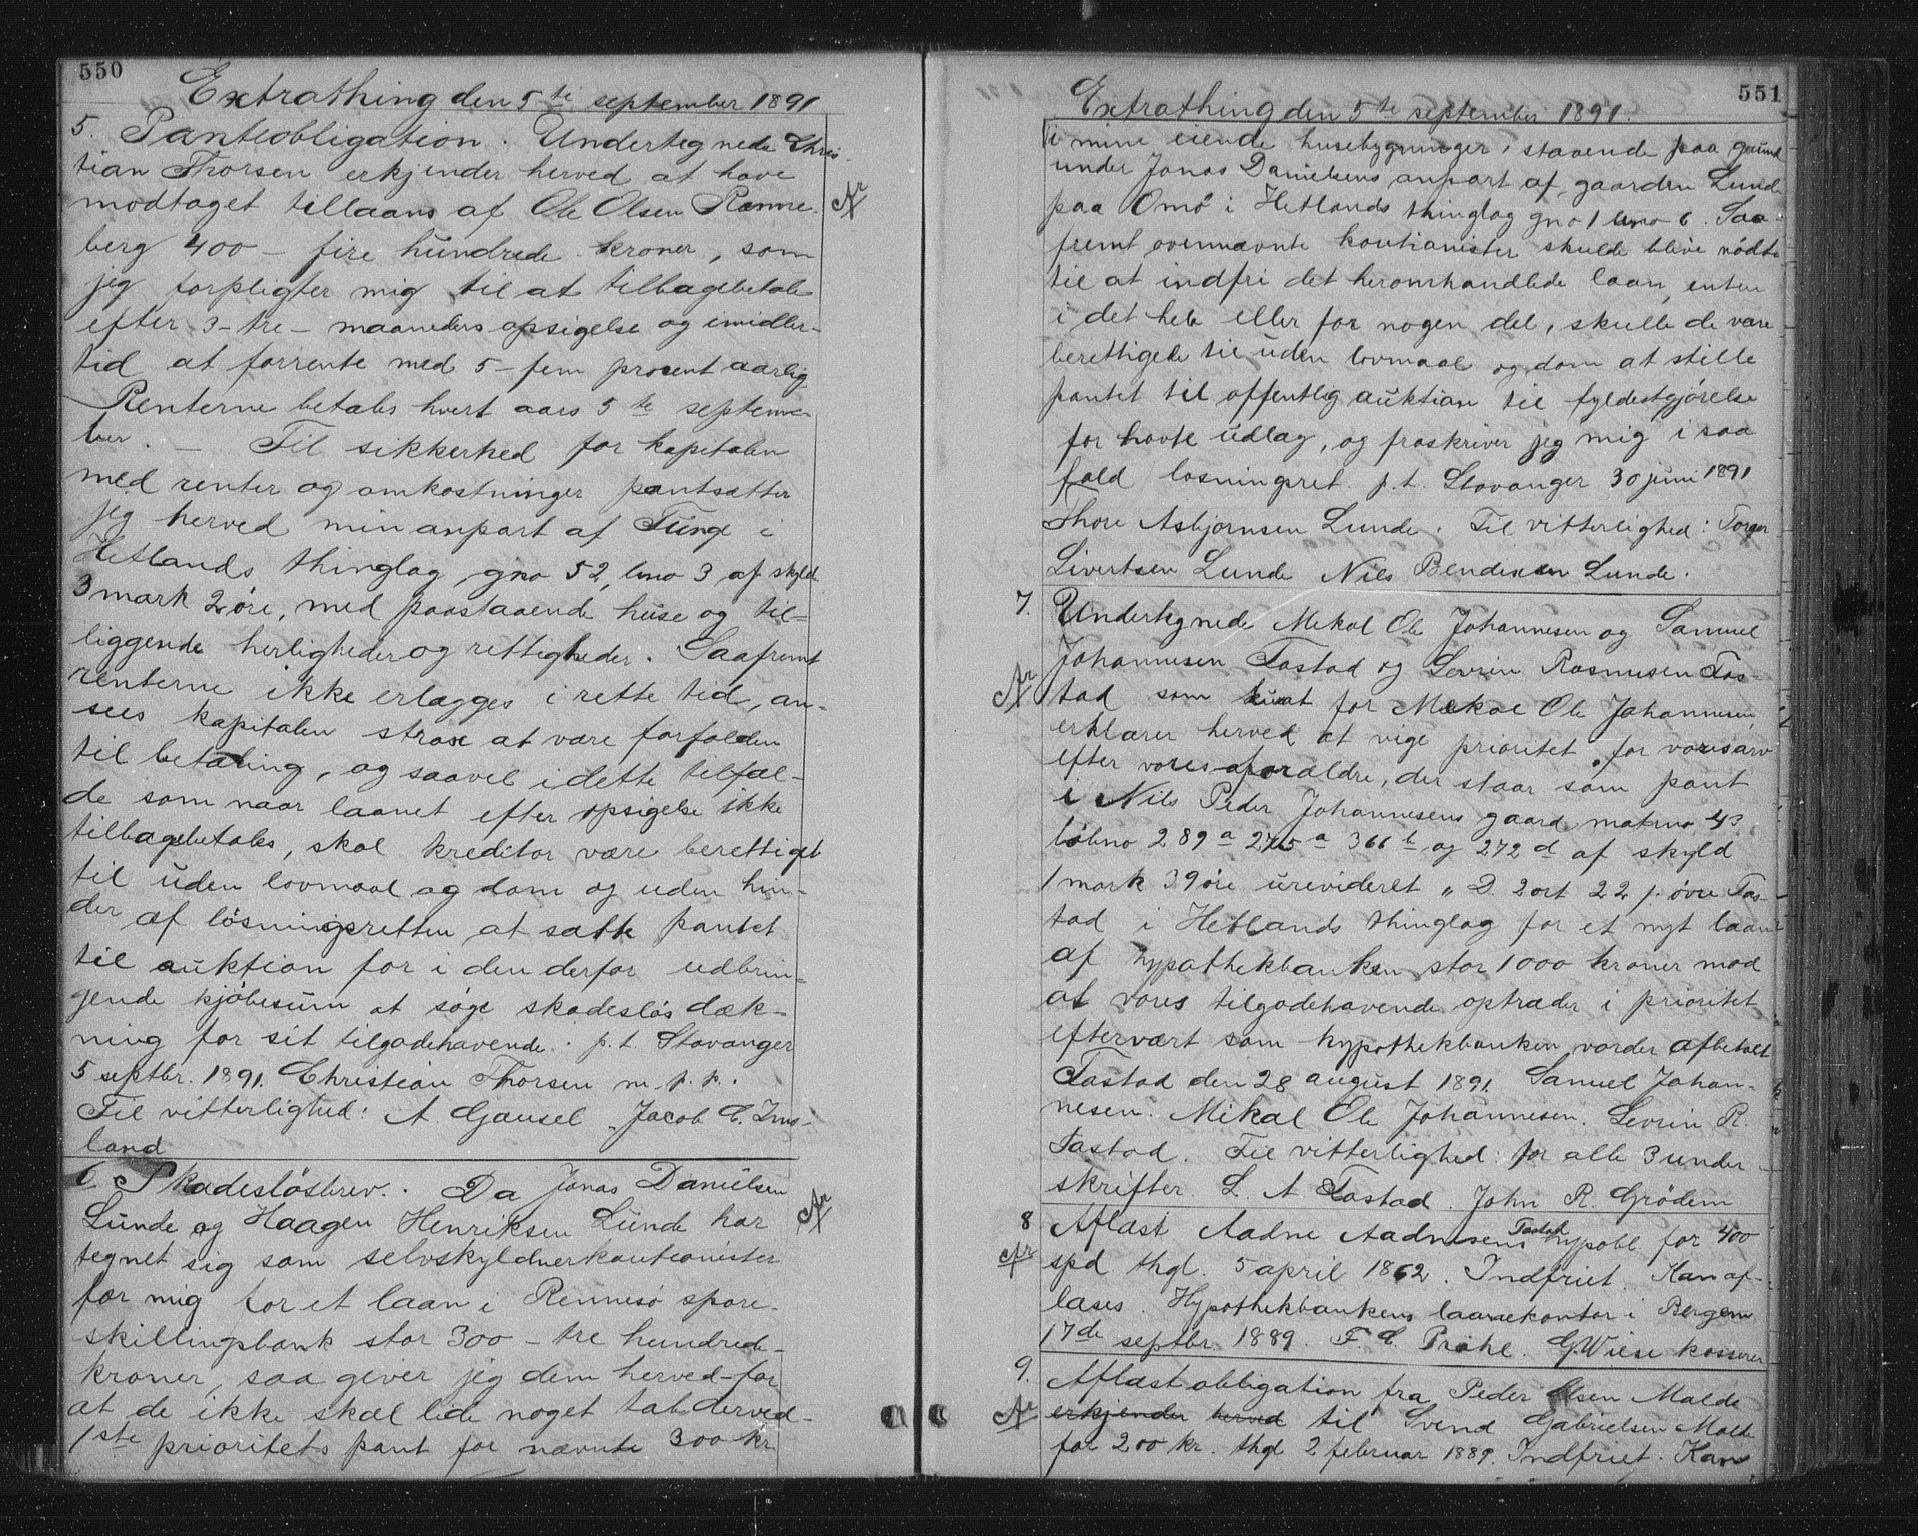 550
Extrathing den 5te september 1891
5. Panteobligation. Undertegnede Chris-
tian Thorsen erkjender herved at have
modtaget tillaans af Ole Olsen Renne-
berg 400 – fire hundrede kroner, som
jeg forpligter mig til at tilbagebetale
efter 3 – tre – maaneders opsigelse og imidler-
tid at forrente med 5 – fem procent aarlig
Renterne betales hvert aars 5te septem-
ber. – Til sikkerhed for kapitalen
med renter og omkostninger pantsætter
jeg herved min anpart af Tunge i
Hetlands thinglag gno 52, bno 3 af skyld
3 mark 2 øre, med paastaaende huse og til-
liggende herligheder og rettigheder. Saafremt
renterne ikke erlægges i rette tid, an-
sees kapitalen strax at være forfalden
til betaling, og saavel i dette tilfæl-
de som naar laanet efter opsigelse ikke
tilbagebetales, skal kreditor være berettiget
til uden lovmaal og dom og uden hin-
der af løsningsretten at sætte pantet
til auktion for i den derfor udbrin-
gende kjøbesum at søge skadesløs dæk-
ning for sit tilgodehavende. p.t. Stavanger
5 septbr. 1891. Christian Thorsen m.p.p.
Til vitterlighed: A. Gausel. Jacob E. Ims-
land
6. Skadesløsbrev. Da Jonas Danielsen
Lunde og Haagen Henriksen Lunde har
tegnet sig som selvskyldnerkautionister
for mig for et laan i Rennesø spare-
skillingsbank stor 300 – tre hundrede –
kroner, saa giver jeg dem herved – for
at de ikke skal lide noget tab derved –
1ste prioritets pant for nævnte 300 kr
551
Extrathing den 5te september 1891.
i mine eiende husebygninger, staaende paa grund
under Jonas Danielsens anpart af gaarden Lunde
paa Omø i Hetlands thinglag gno 1 bno 6. Saa-
fremt ovennævnte kautionister skulde blive nødte
til at indfri det heromhandlede laan, enten
i det hele eller for nogen del, skulle de være
berettigede til uden lovmaal og dom at stille
pantet til offentlig auktion til fyldestgjørelse
for havte udlag, og fraskriver jeg mig i saa
fald løsningsret. p.t. Stavanger 30 juni 1891
Thore Asbjørnsen Lunde. Til vitterlighed: Torger
Sivertsen Lunde Nils Bendixen Lunde.
7. Undertegnede Mekal Ole Johannesen og Samuel
Johannesen Tastad og Sevrin Rasmusen Tas-
tad som kurat for Mekal Ole Johannesen,
erklærer herved at vige prioritet for voresarv
efter vores forældre, der staar som pant
i Nils Peder Johannesens gaard matrno 43
løbno 289a 275a 366b og 272d af skyld
1 mark 39 øre urevideret " D. 2 ort 22 s. øvre Tas-
tad i Hetlands thinglag for et nyt laan
af hypothekbanken stor 1000 kroner mod
at vores tilgodehavende optræder i prioritet
eftervært som hypothekbanken vorder afbetalt
Tastad den 28 august 1891. Samuel Johan-
nesen. Mikal Ole Johannesen. Sevrin R.
Tastad. Til vitterlighed: for alle 3 under-
skrifter L. A. Tastad. John R. Grødem
8 Aflæst Aadne Aadnesens Tastad hypobl. for 400
spd thgl. 5 april 1862. Indfriet. Kan af-
læses. Hypothekbankens laanekontor i Bergen
17de septbr 1889. F. C. Prahl. G Wiese kasserer
9. Aflæst obligation fra Peder Olsen Malde
erkjender herved til Svend Gabrielsen Malde
for 200 kr. thgl 2 februar 1889. Indfriet. Kan